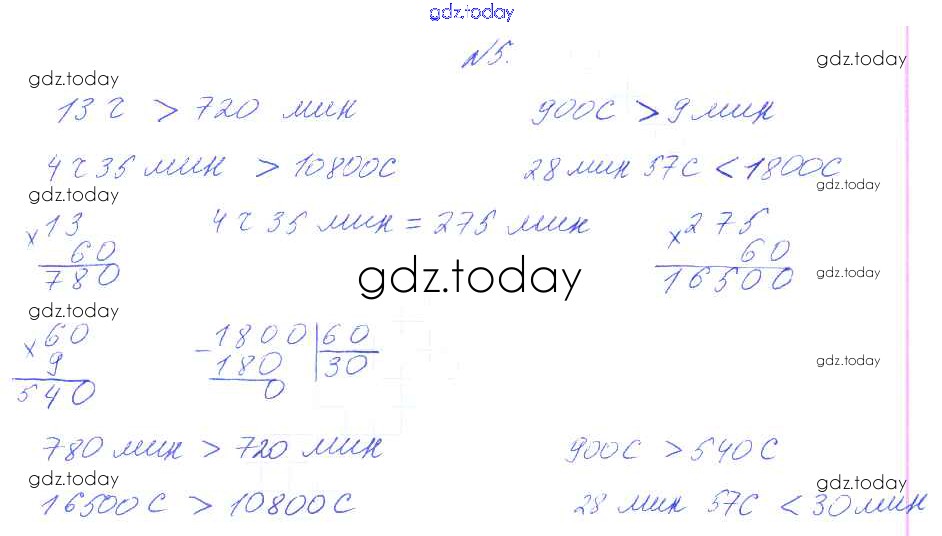 gdz.today
№5.
gdz.today gdz.today
13 ч > 720 мин 900с > 9 мин
4 ч 35 мин > 10800с 28 мин 57с < 1800с
gdz.today gdz.today
× 13 4 ч 35 мин = 275 мин × 275
60 60
780 16500
gdz.today gdz.today
gdz.today
× 60 - 1800 60
9 180 30
540 0
gdz.today
780 мин > 720 мин 900с > 540с
gdz.today gdz.today
16500с > 10800с 28 мин 57с < 30 мин